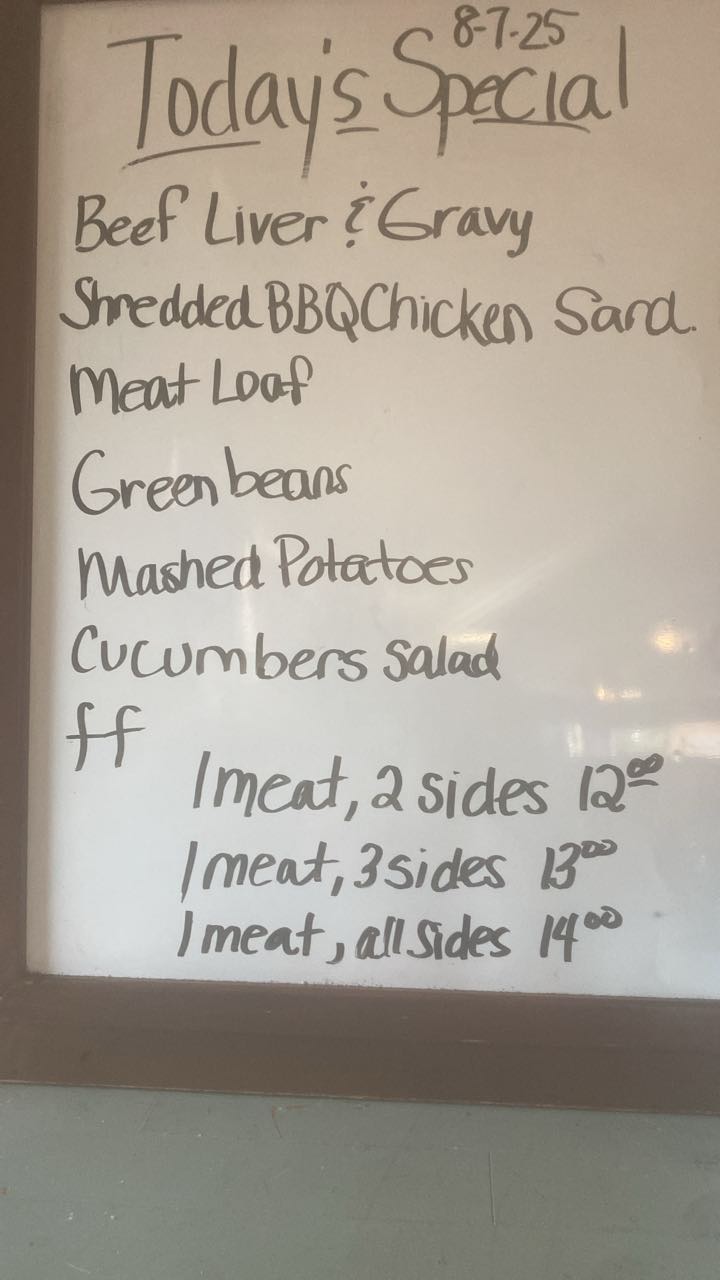 8-7-25
Today's Special
Beef Liver & Gravy
Shredded BBQ Chicken Sand.
Meat Loaf
Green beans
Mashed Potatoes
Cucumbers Salad
ff
1 meat, 2 sides 12⁰⁰
1 meat, 3 sides 13⁰⁰
1 meat, all sides 14⁰⁰